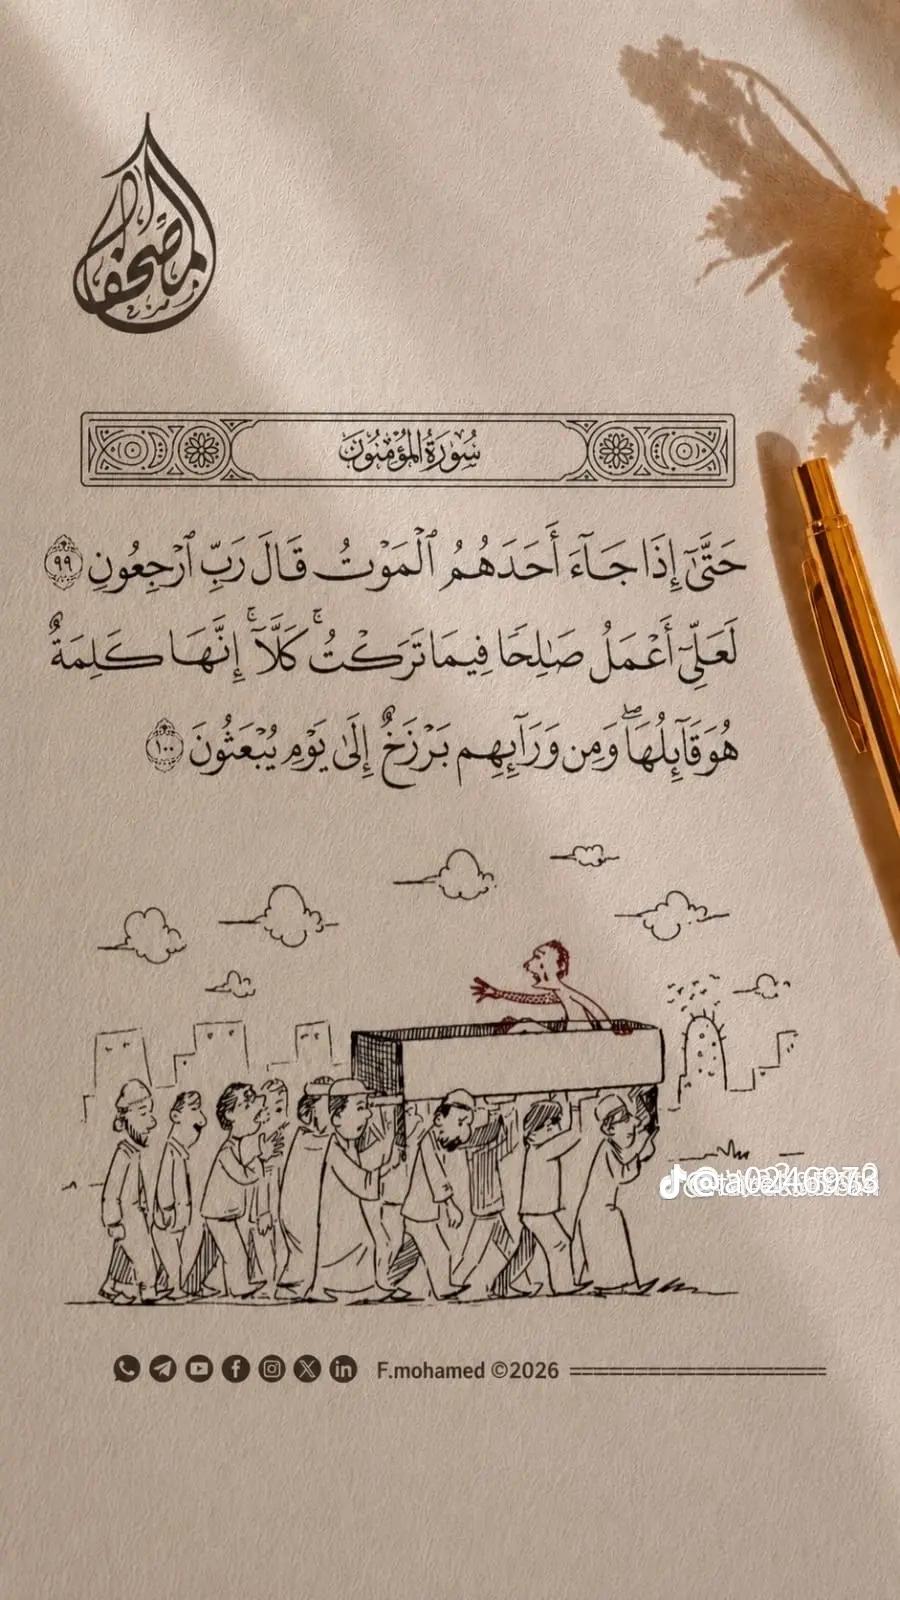 المصحف
سُورَةُ المُؤْمِنُونَ
حَتَّىٰٓ إِذَا جَآءَ أَحَدَهُمُ ٱلْمَوْتُ قَالَ رَبِّ ٱرْجِعُونِ ٩٩
لَعَلِّىٓ أَعْمَلُ صَـٰلِحًا فِيمَا تَرَكْتُ ۚ كَلَّآ ۚ إِنَّهَا كَلِمَةٌ
هُوَ قَآئِلُهَا ۖ وَمِن وَرَآئِهِم بَرْزَخٌ إِلَىٰ يَوْمِ يُبْعَثُونَ ١٠٠
F.mohamed ©2026